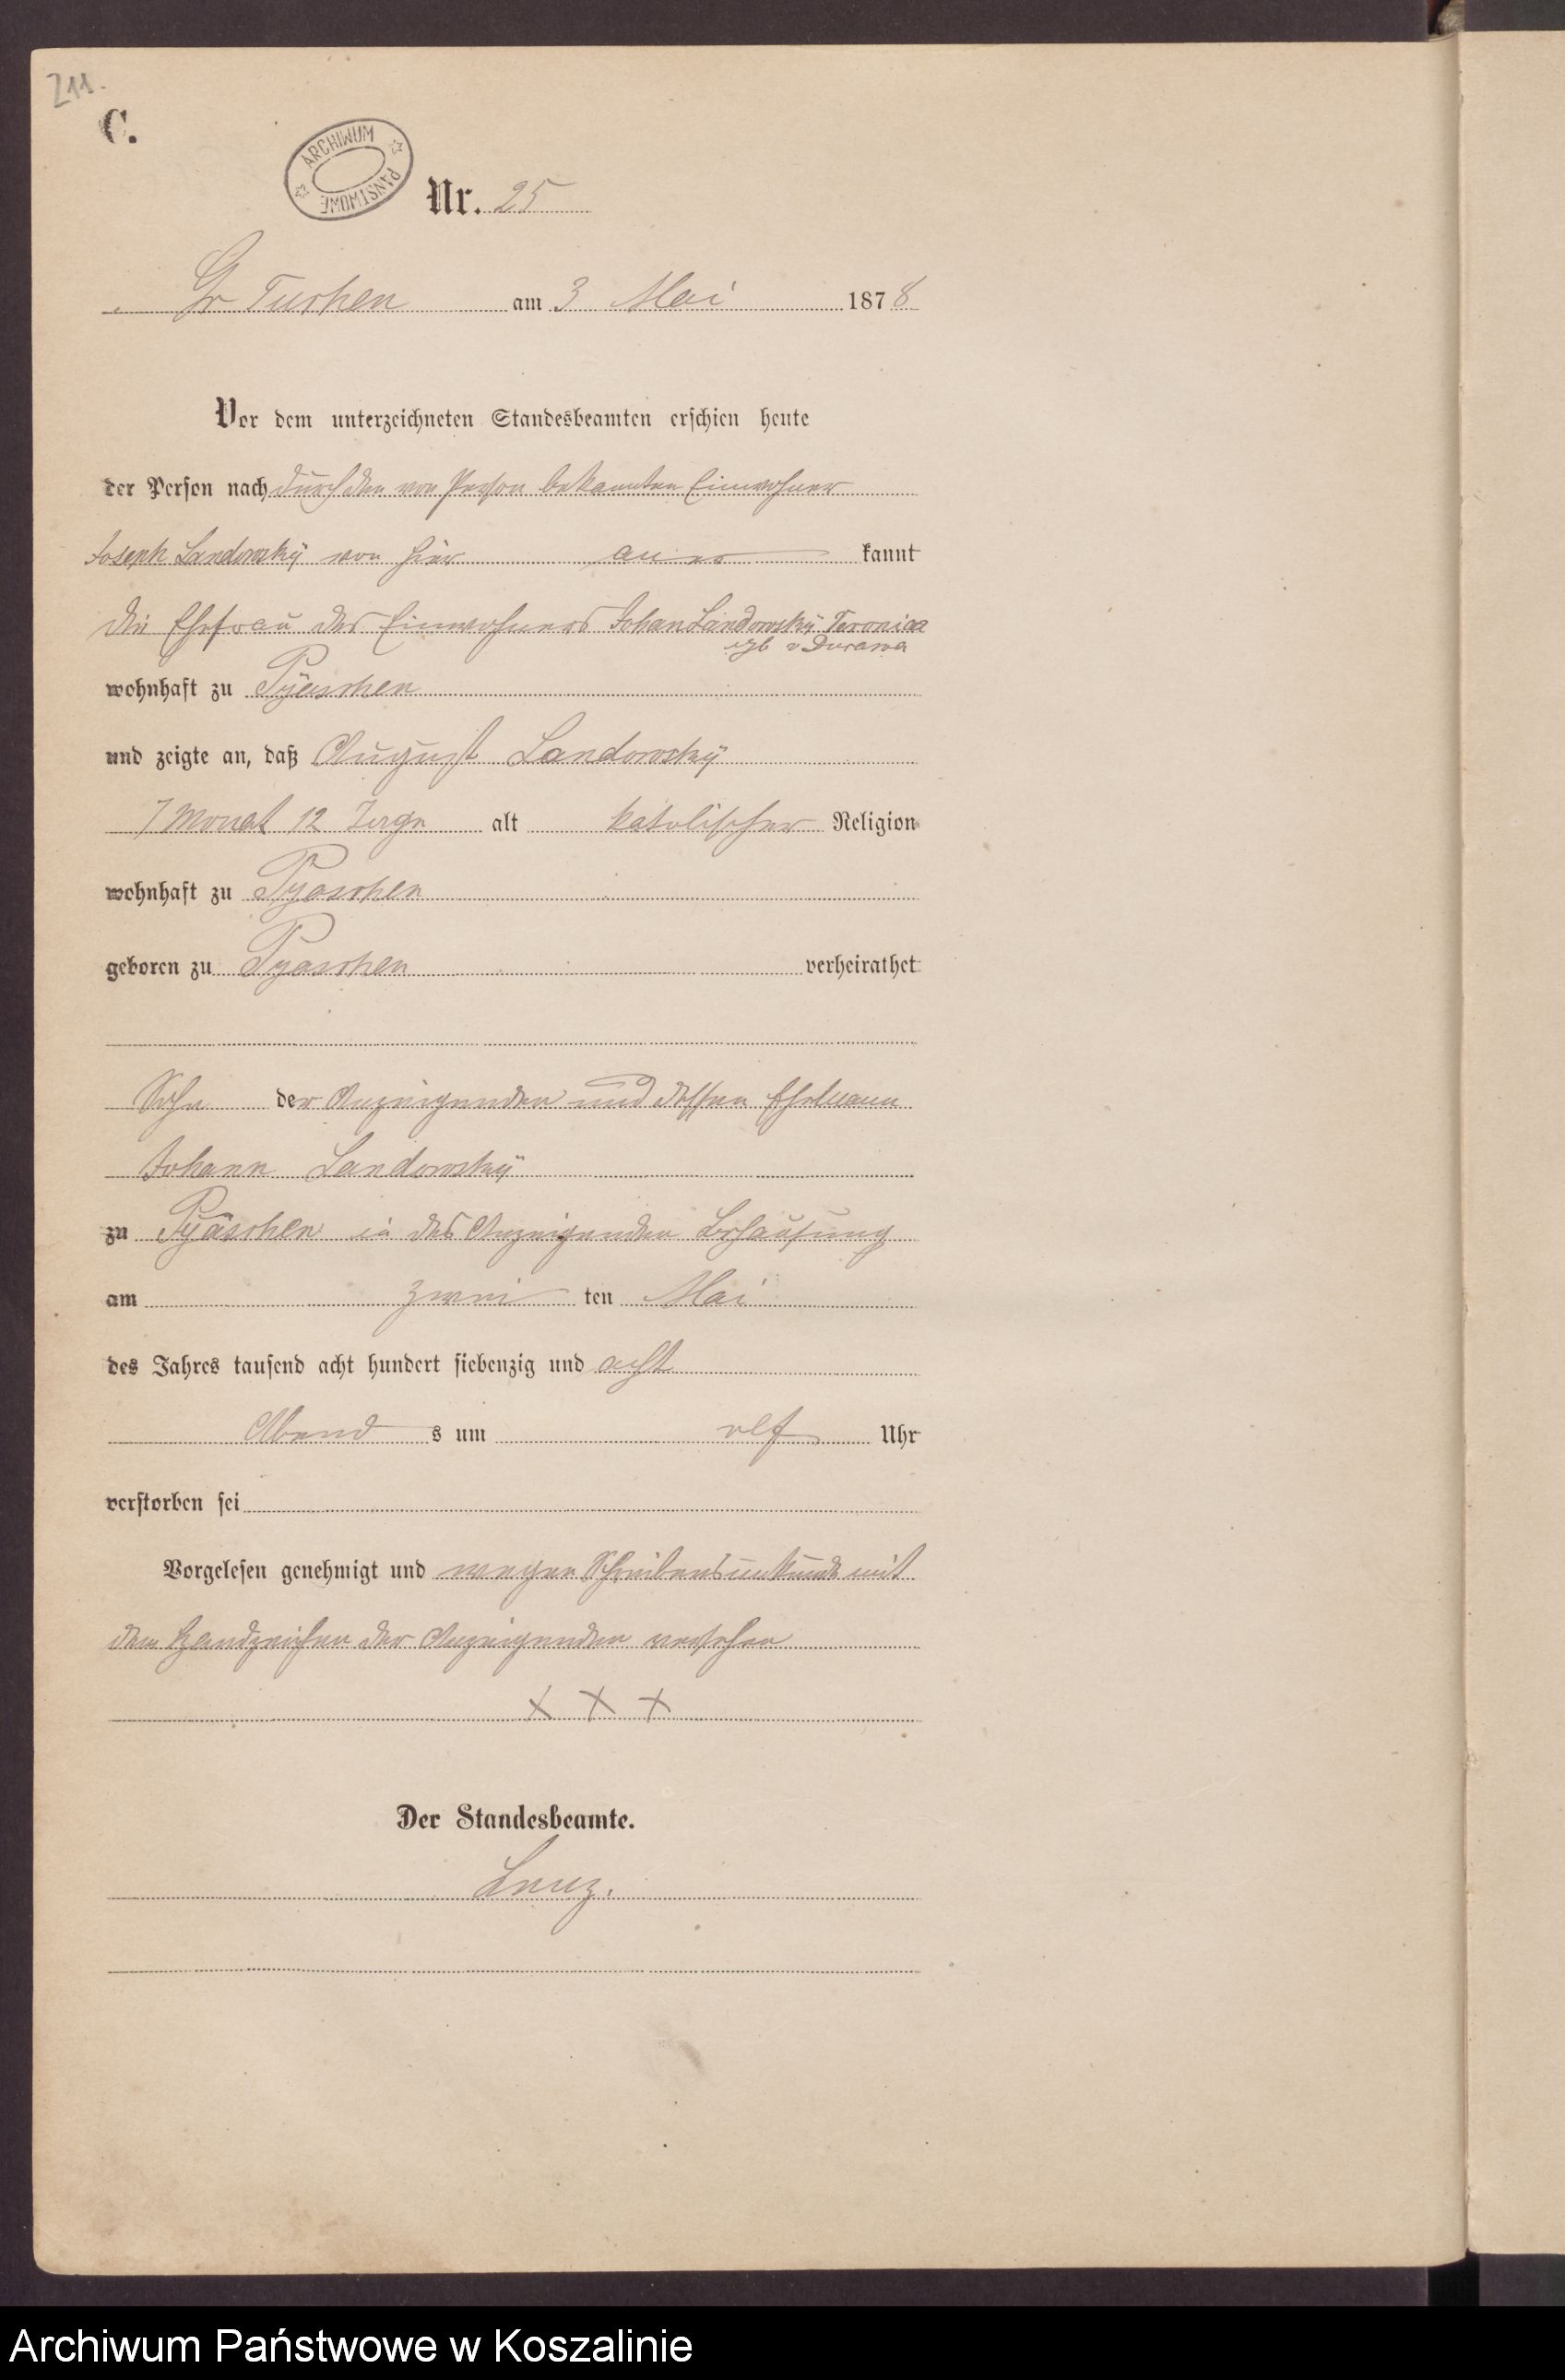 211.
C.
ARCHIWUM PAŃSTWOWE
Nr. 25
Gr Tuchen am 3 Mai 1878
Vor dem unterzeichneten Standesbeamten erschien heute
der Person nach durch den von Person bekannten Einwohner
Joseph Landowskÿ von hier aner kannt
die Ehefrau des Einwohners Johan Landowskÿ Veronica
geb v Durawa
wohnhaft zu Pÿaschen
und zeigte an, daß August Landowskÿ
7 Monat 12 Tage alt katolischer Religion
wohnhaft zu Pyaschen
geboren zu Pyaschen verheirathet
Sohn der Anzeigenden und dessen Ehemann
Johann Landowskÿ
zu Pÿaschen in des Anzeigenden Behausung
am zwei ten Mai
des Jahres tausend acht hundert siebenzig und acht
Abend s um elf Uhr
verstorben sei
Vorgelesen genehmigt und wegen Schreibensunkunde mit
dem Handzeichen der Anzeigenden versehen
X X X
Der Standesbeamte.
Lenz.
Archiwum Państwowe w Koszalinie